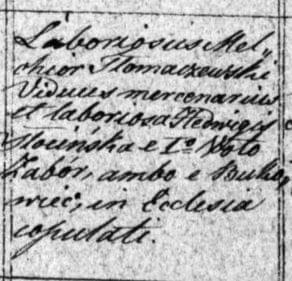 Laboriosus Mel„
chior Tłomaczewski
Viduus mercenarius
et laboriosa Hedwigis
Słocińska e Iº Voto
Zabór, ambo e Buko„
wiec, in Ecclesia
copulati.